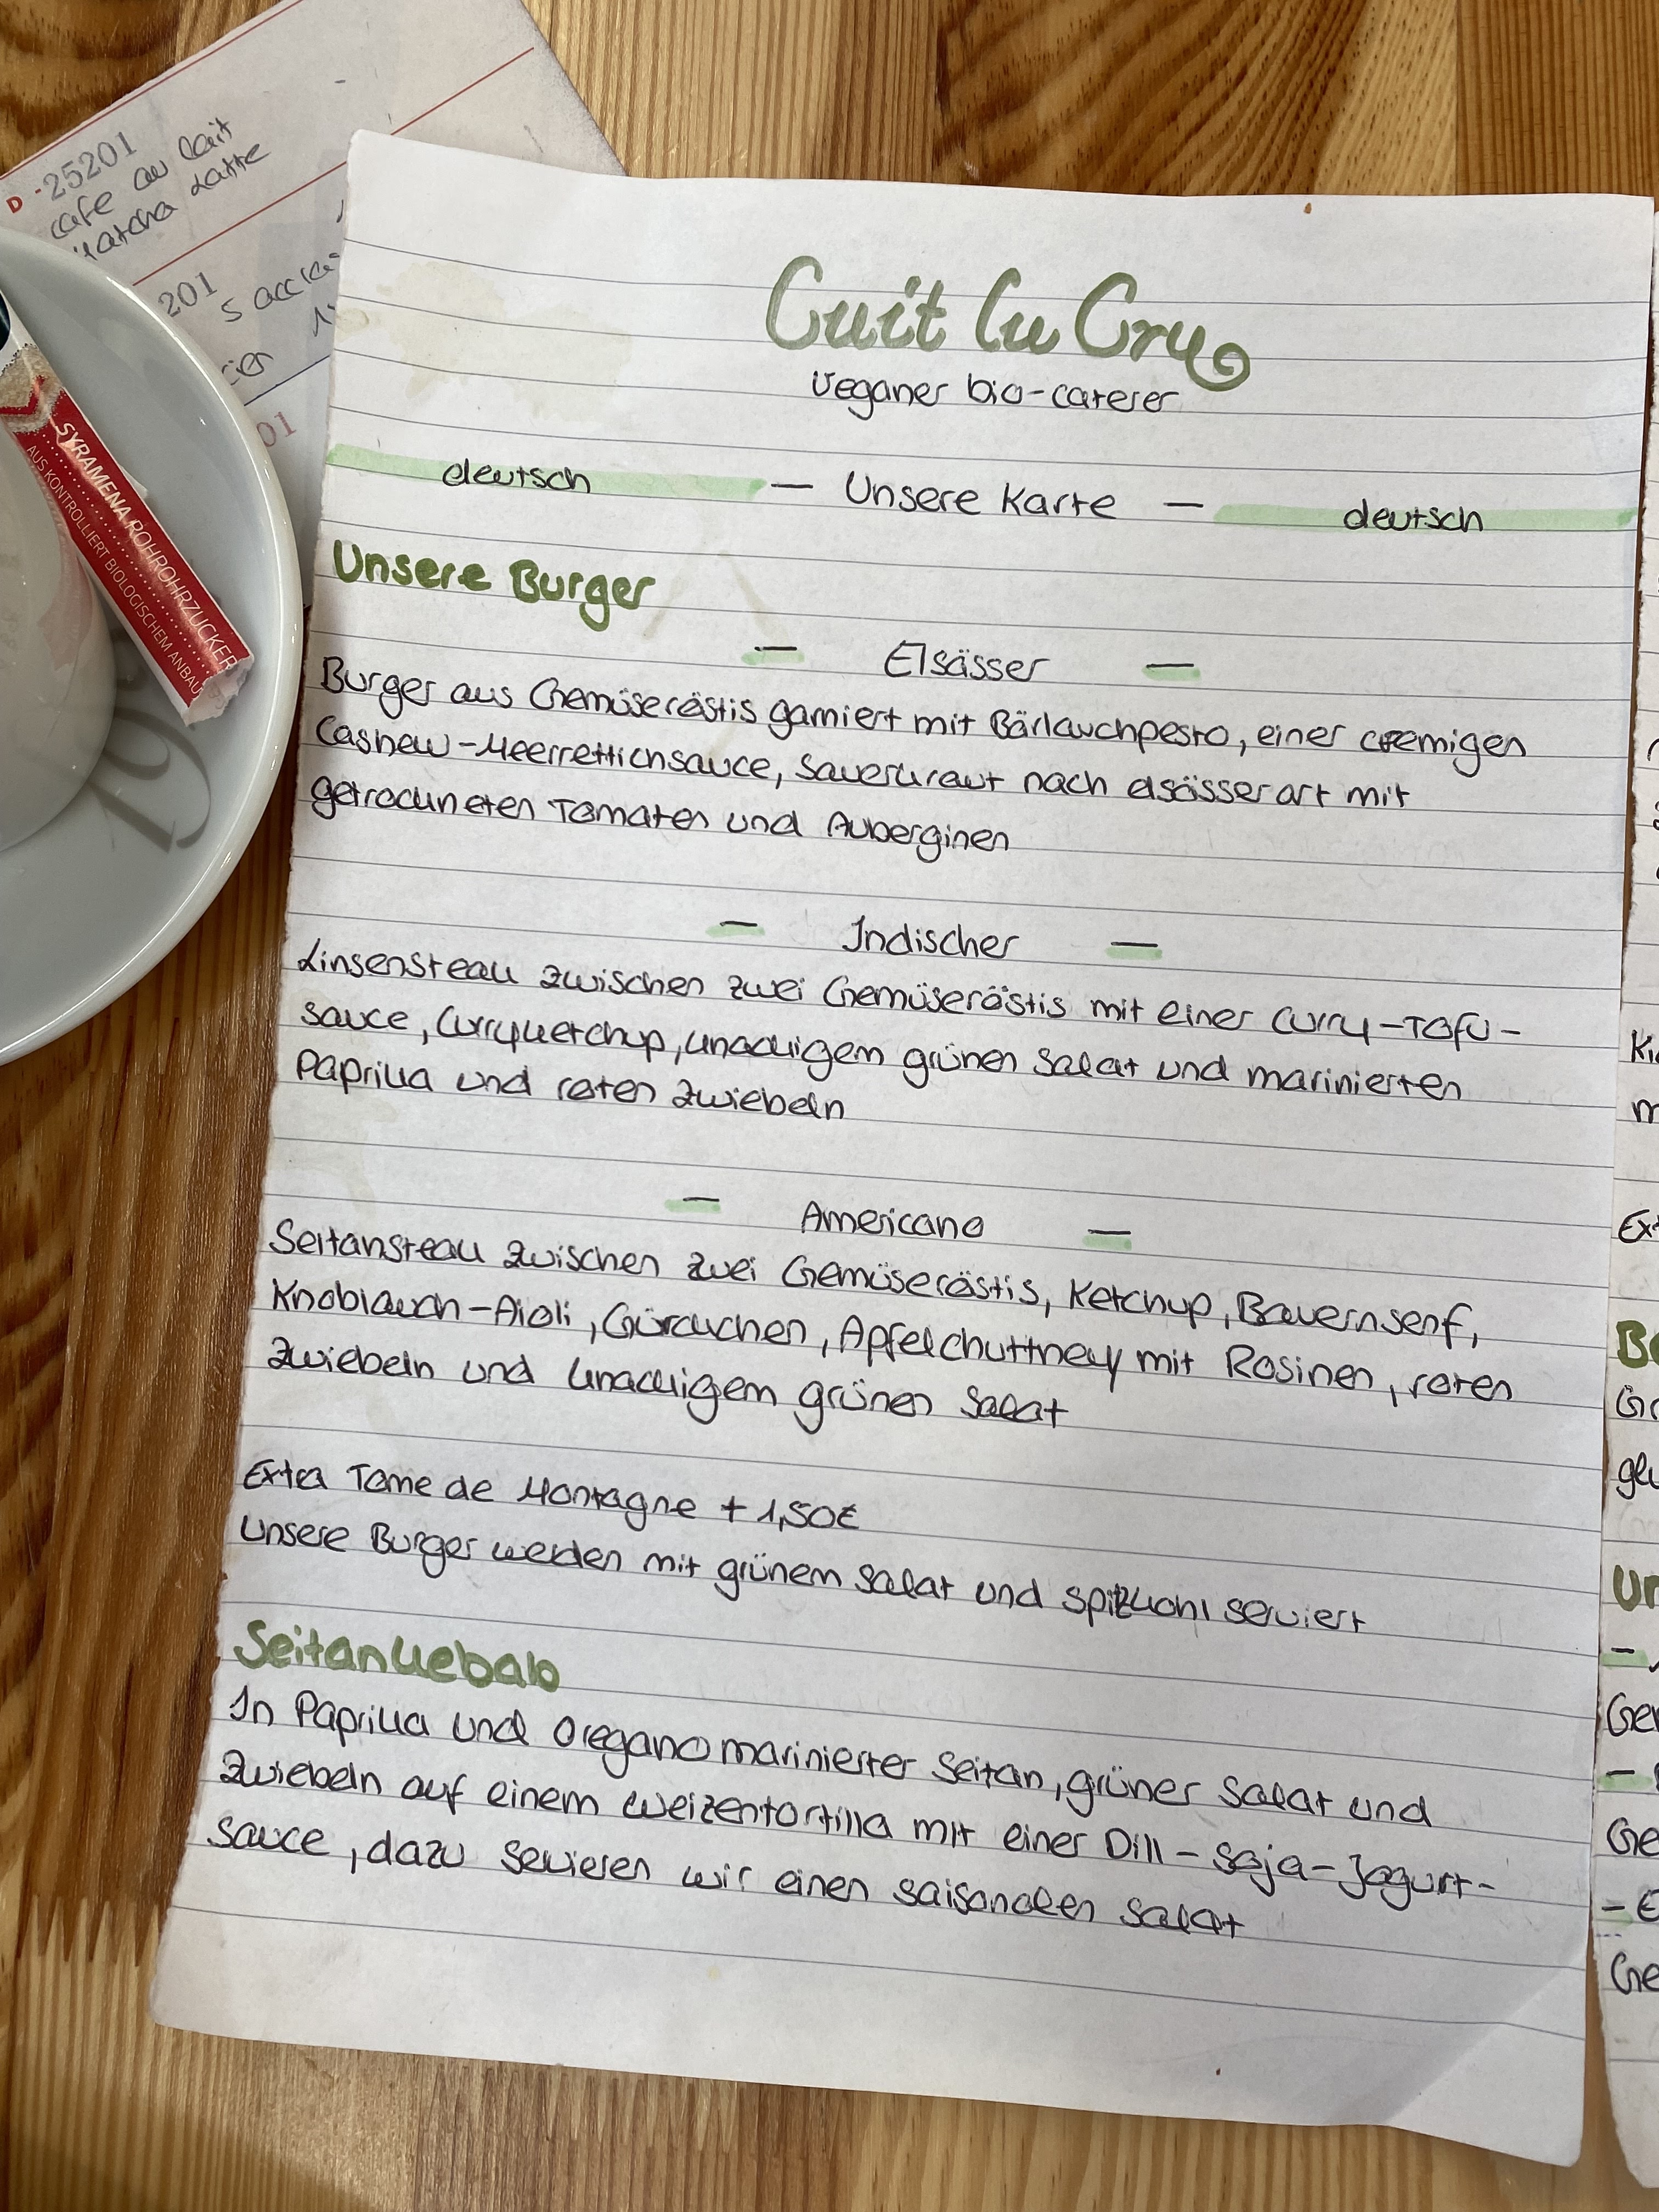 D - 25201
cafe au lait
Matcha Latte
201
5 acc
cier
01
SYRAMENA ROHROHRZUCKER
AUS KONTROLLIERT BIOLOGISCHEM ANBAU
Cuit Lu Cru
Veganer bio-caterer
deutsch — Unsere Karte — deutsch
Unsere Burger
— Elsässer —
Burger aus Gemüseröstis garniert mit Bärlauchpesto, einer cremigen
Cashew-Meerrettichsauce, Sauerkraut nach elsässerart mit
getrockneten Tomaten und Auberginen
— Indischer —
Linsensteak zwischen zwei Gemüseröstis mit einer Curry-Tofu-
sauce, Curryketchup, knackigem grünen Salat und marinierten
Paprika und roten Zwiebeln
— Americano —
Seitansteak zwischen zwei Gemüseröstis, Ketchup, Bauernsenf,
Knoblauch-Aioli, Gürckchen, Apfelchuttney mit Rosinen, roten
Zwiebeln und knackigem grünen Salat
Extra Tome de Montagne + 1,50€
Unsere Burger werden mit grünem Salat und Spitzkohl serviert
Seitankebab
In Paprika und Oregano marinierter Seitan, grüner Salat und
Zwiebeln auf einem Weizentortilla mit einer Dill-Soja-Jogurt-
sauce, dazu sevieren wir einen saisonalen Salat